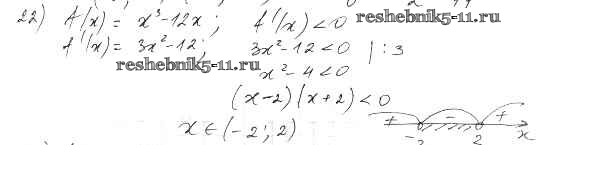 22) f(x) = x³-12x ; f'(x) < 0
reshebnik5-11.ru
f'(x) = 3x²-12; 3x²-12<0 | : 3
reshebnik5-11.ru
x²-4<0
(x-2)(x+2)<0
+ - +
x∈(-2; 2) -2 2 x